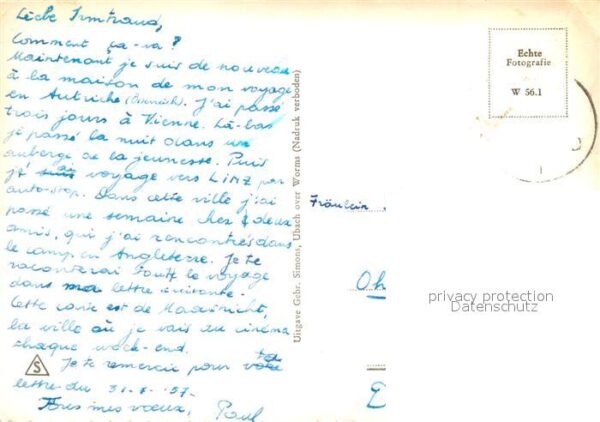 Liebe Irmtraud,
Comment ça-va?
Maintenant je suis de nouveau
à la maison de mon voyage
en Autriche (Österreich). J'ai passé
trois jours à Vienne. Là-bas
j'é passé la nuit dans un
auberge de la jeunesse. Puis
j'é voyage vers LINZ par
auto-stop. Dans cette ville j'ai
passé une semaine chez deux
amis, qui j'ai rencontrés dans
le camp en Angleterre. Je te
raconterai toute le voyage
dans ma lettre suivante.
Cette carte est de Maastricht,
la ville où je vais au cinéma
chaque week-end.
Je te remercie pour ta
lettre du 31-8-'57.
Tous mes vœux, Paul.
S
Uitgave Gebr. Simons, Ubach over Worms (Nadruk verboden)
Echte
Fotografie
W 56.1
Fräulein
Oh
privacy protection
Datenschutz